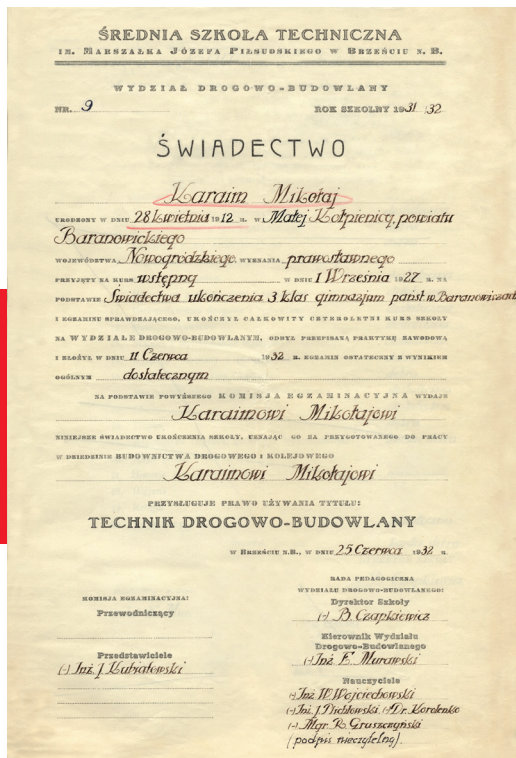 ŚREDNIA SZKOŁA TECHNICZNA
IM. MARSZAŁKA JÓZEFA PIŁSUDSKIEGO W BRZEŚCIU N. B.
WYDZIAŁ DROGOWO-BUDOWLANY
NR. 9 ROK SZKOLNY 1931/32
ŚWIADECTWO
Karaim Mikołaj
URODZONY W DNIU 28 kwietnia 1912 R. W Małej Kołpienicy, powiatu
Baranowickiego
WOJEWÓDZTWA Nowogródzkiego WYZNANIA prawosławnego
PRZYJĘTY NA KURS wstępny W DNIU 1 Września 1927 R. NA
PODSTAWIE Świadectwa ukończenia 3 klas gimnazjum państ. w Baranowiczach
I EGZAMINU SPRAWDZAJĄCEGO, UKOŃCZYŁ CAŁKOWITY CZTEROLETNI KURS SZKOŁY
NA WYDZIALE DROGOWO-BUDOWLANYM, ODBYŁ PRZEPISANĄ PRAKTYKĘ ZAWODOWĄ
I ZŁOŻYŁ W DNIU 11 Czerwca 1932 R. EGZAMIN OSTATECZNY Z WYNIKIEM
OGÓLNYM dostatecznym
NA PODSTAWIE POWYŻSZEGO KOMISJA EGZAMINACYJNA WYDAJE
Karaimowi Mikołajowi
NINIEJSZE ŚWIADECTWO UKOŃCZENIA SZKOŁY, UZNAJĄC GO ZA PRZYGOTOWANEGO DO PRACY
W DZIEDZINIE BUDOWNICTWA DROGOWEGO I KOLEJOWEGO
Karaimowi Mikołajowi
PRZYSŁUGUJE PRAWO UŻYWANIA TYTUŁU:
TECHNIK DROGOWO-BUDOWLANY
W BRZEŚCIU N.B., W DNIU 25 Czerwca 1932 R.
KOMISJA EGZAMINACYJNA:
Przewodniczący
Przedstawiciele
(-) Inż. J. Kubiatowski
RADA PEDAGOGICZNA
WYDZIAŁU DROGOWO-BUDOWLANEGO:
Dyrektor Szkoły
(-) B. Czapkiewicz
Kierownik Wydziału
Drogowo-Budowlanego
(-) Inż. E. Murawski
Nauczyciele
(-) Inż. W. Wojciechowski
(-) Inż. J. (-) Dr. Korolenko
(-) Mgr. R. Gruszczyński
(podpis nieczytelny)